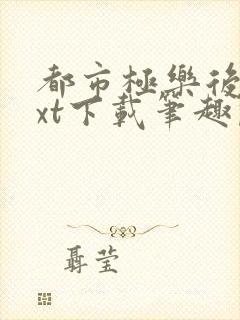 都市極樂後
xt下載筆趣
聶莹